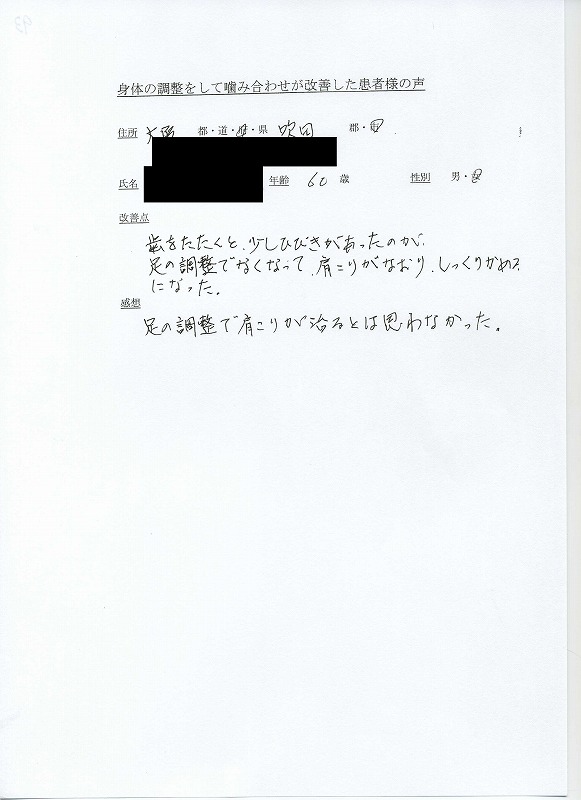 身体の調整をして噛み合わせが改善した患者様の声
住所 大阪 都・道・府・県 吹田 郡・市
氏名 年齢 60 歳 性別 男・女
改善点
歯をたたくと、少しひびきがあったのが、
足の調整でなくなって、肩こりがなおり、しっくりかめる
になった。
感想
足の調整で肩こりが治るとは思わなかった。